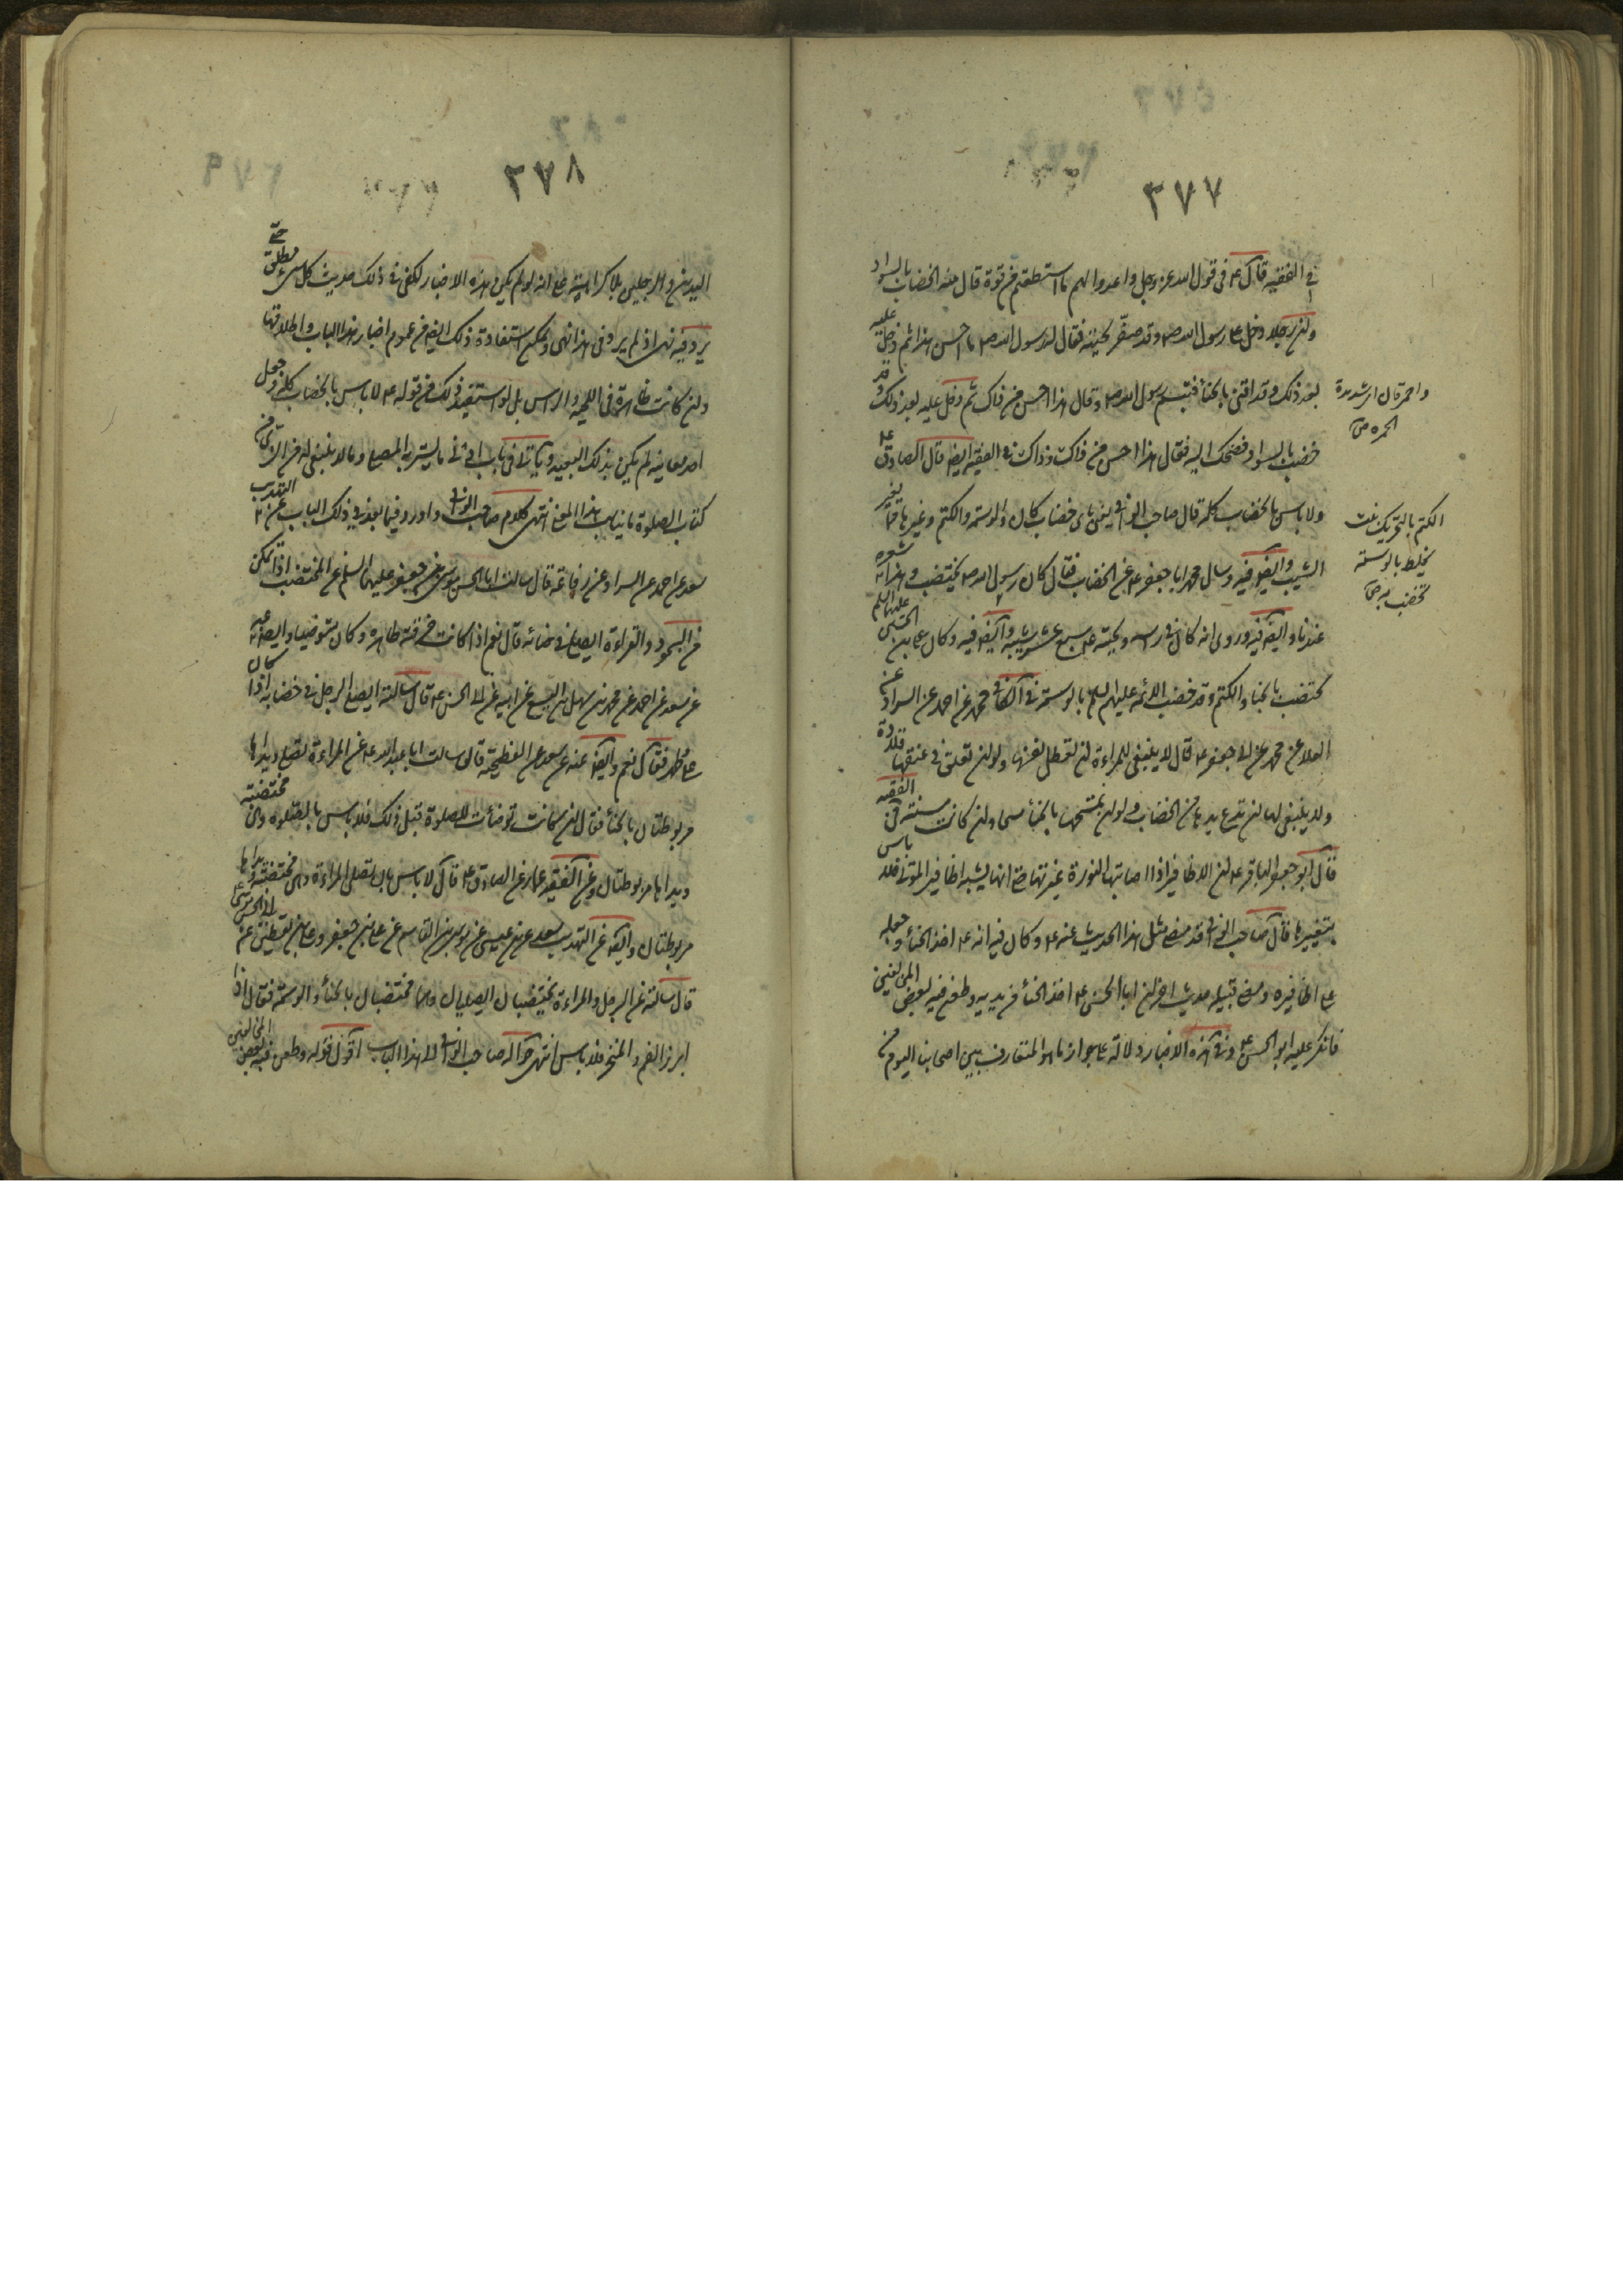 ٣٧٧
في الفقيه قال ع في قول الله عز وجل واعدوا لهم ما استطعتم من قوة قال منه الخضاب بالسواد
وان رجلا دخل على رسول الله ص وقد صفر لحيته فقال له رسول الله ص ما احسن هذا ثم دخل عليه
بعد ذلك وقد اقنى بالحناء فتبسم رسول الله ص وقال هذا احسن من ذاك ثم دخل عليه بعد ذلك وقد
خضب بالسواد فضحك اليه فقال هذا احسن من ذاك وذاك في الفقيه ايضا قال الصادق ع
ولا باس بالخضاب كله قال صاحب الوافي يعني باي خضاب كان والوسمة والكتم وغيرها مما يغير
الشيب وايضا فيه وسال محمد ابا جعفر ع عن الخضاب فقال كان رسول الله ص يختضب وهذا شعره
عندنا وايضا فيه وروى انه كان في راسه ولحيته ع سبع عشر شيبة وايضا فيه وكان علي بن الحسين عليهما السلم
يختضب بالحناء والكتم وقد خضب الائمه عليهم السلم بالوسمة في الكافي محمد عن احمد عن السراد عن
العلا عن محمد عن ابي جعفر ع قال لا ينبغي للمراءة ان تعطل نفسها ولو ان تعلق في عنقها قلادة
ولا ينبغي لها ان تدع يدها من الخضاب ولو ان تمسحها بالحناء مسحا وان كانت مسنة في الفقيه
قال ابو جعفر الباقر ع ان الاظافير اذا اصابتها النورة غيرتها حتى انها يشبه اظافير الموتى فلا باس
بتغييرها قال صاحب الوافي قد مضى مثل هذا الحديث عنه ع وكان فيه انه ع اخذ الحناء وجعله
على اظافيره ومضى قبيله حديث اخر ان ابا الحسن ع اخذ الحناء من يديه وطعن فيه بعض المخالفين
فانكر عليه ابو الحسن ع وفي هذه الاخبار دلالة على جواز ما هو المتعارف بين اصحابنا اليوم من
واحمر قان اي شديدة
الحمرة ص
الكتم بالتحريك نبت
يخلط بالوسمة
تخضب به ص
٣٧٨
اليدين والرجلين بلا كراهية على انه لو لم يكن هذه الاخبار لكفى في ذلك حديث كل شيء مطلق حتى
يرد فيه نهى اذ لم يرد في هذا نهى ويمكن استفادة ذلك ايضا من عموم اخبار هذا الباب واطلاقها
وان كانت ظاهرة في اللحية والراس بل لو استفيد ذلك من قوله ع لا باس بالخضاب كله وجعل
احد معانيه لم يكن بذلك البعيد ويأتي في باب ما يستر به المصلي وما لا ينبغي له من الزي من
كتاب الصلوة ما يناسب هذا المعنى انتهى كلام صاحب الوافي واورد فيما بعد في ذلك الباب عن التهذيب
سعد عن احمد عن السراد عن رفاعة قال سالت ابا الحسن موسى بن جعفر عليهما السلم عن المختضب اذا تمكن
من السجود والقراءة ايصلي في حنائه قال نعم اذا كانت خرقته طاهرة وكان متوضيا وايضا عنه
عن سعد عن احمد عن محمد بن سهل بن اليسع عن ابيه عن ابي الحسن ع قال سالته ايصلي الرجل في خضابه اذا كان
على طهر فقال نعم وايضا عنه عن سعد عن الفطحية قال سالت ابا عبد الله ع عن المراءة تصلي ويداها
مربوطتان بالحناء فقال ان كانت توضأت للصلوة قبل ذلك فلا باس بالصلوة وهي مختضبة
ويداها مربوطتان وعن الفقيه عمار عن الصادق ع قال لا باس بان تصلي المراءة وهي مختضبة ويداها
مربوطتان وايضا عن التهذيب سعد عن ابن عيسى عن موسى بن القاسم عن علي بن جعفر وعلي بن يقطين عن ابي الحسن موسى ع
قال سالته عن الرجل والمراءة يختضبان ايصليان وهما مختضبان بالحناء والوسمة فقال اذا
ابرزا الفم والمنخر فلا باس انتهى ما قاله صاحب الوافي في هذا الباب اقول قوله وطعن فيه بعض المخالفين